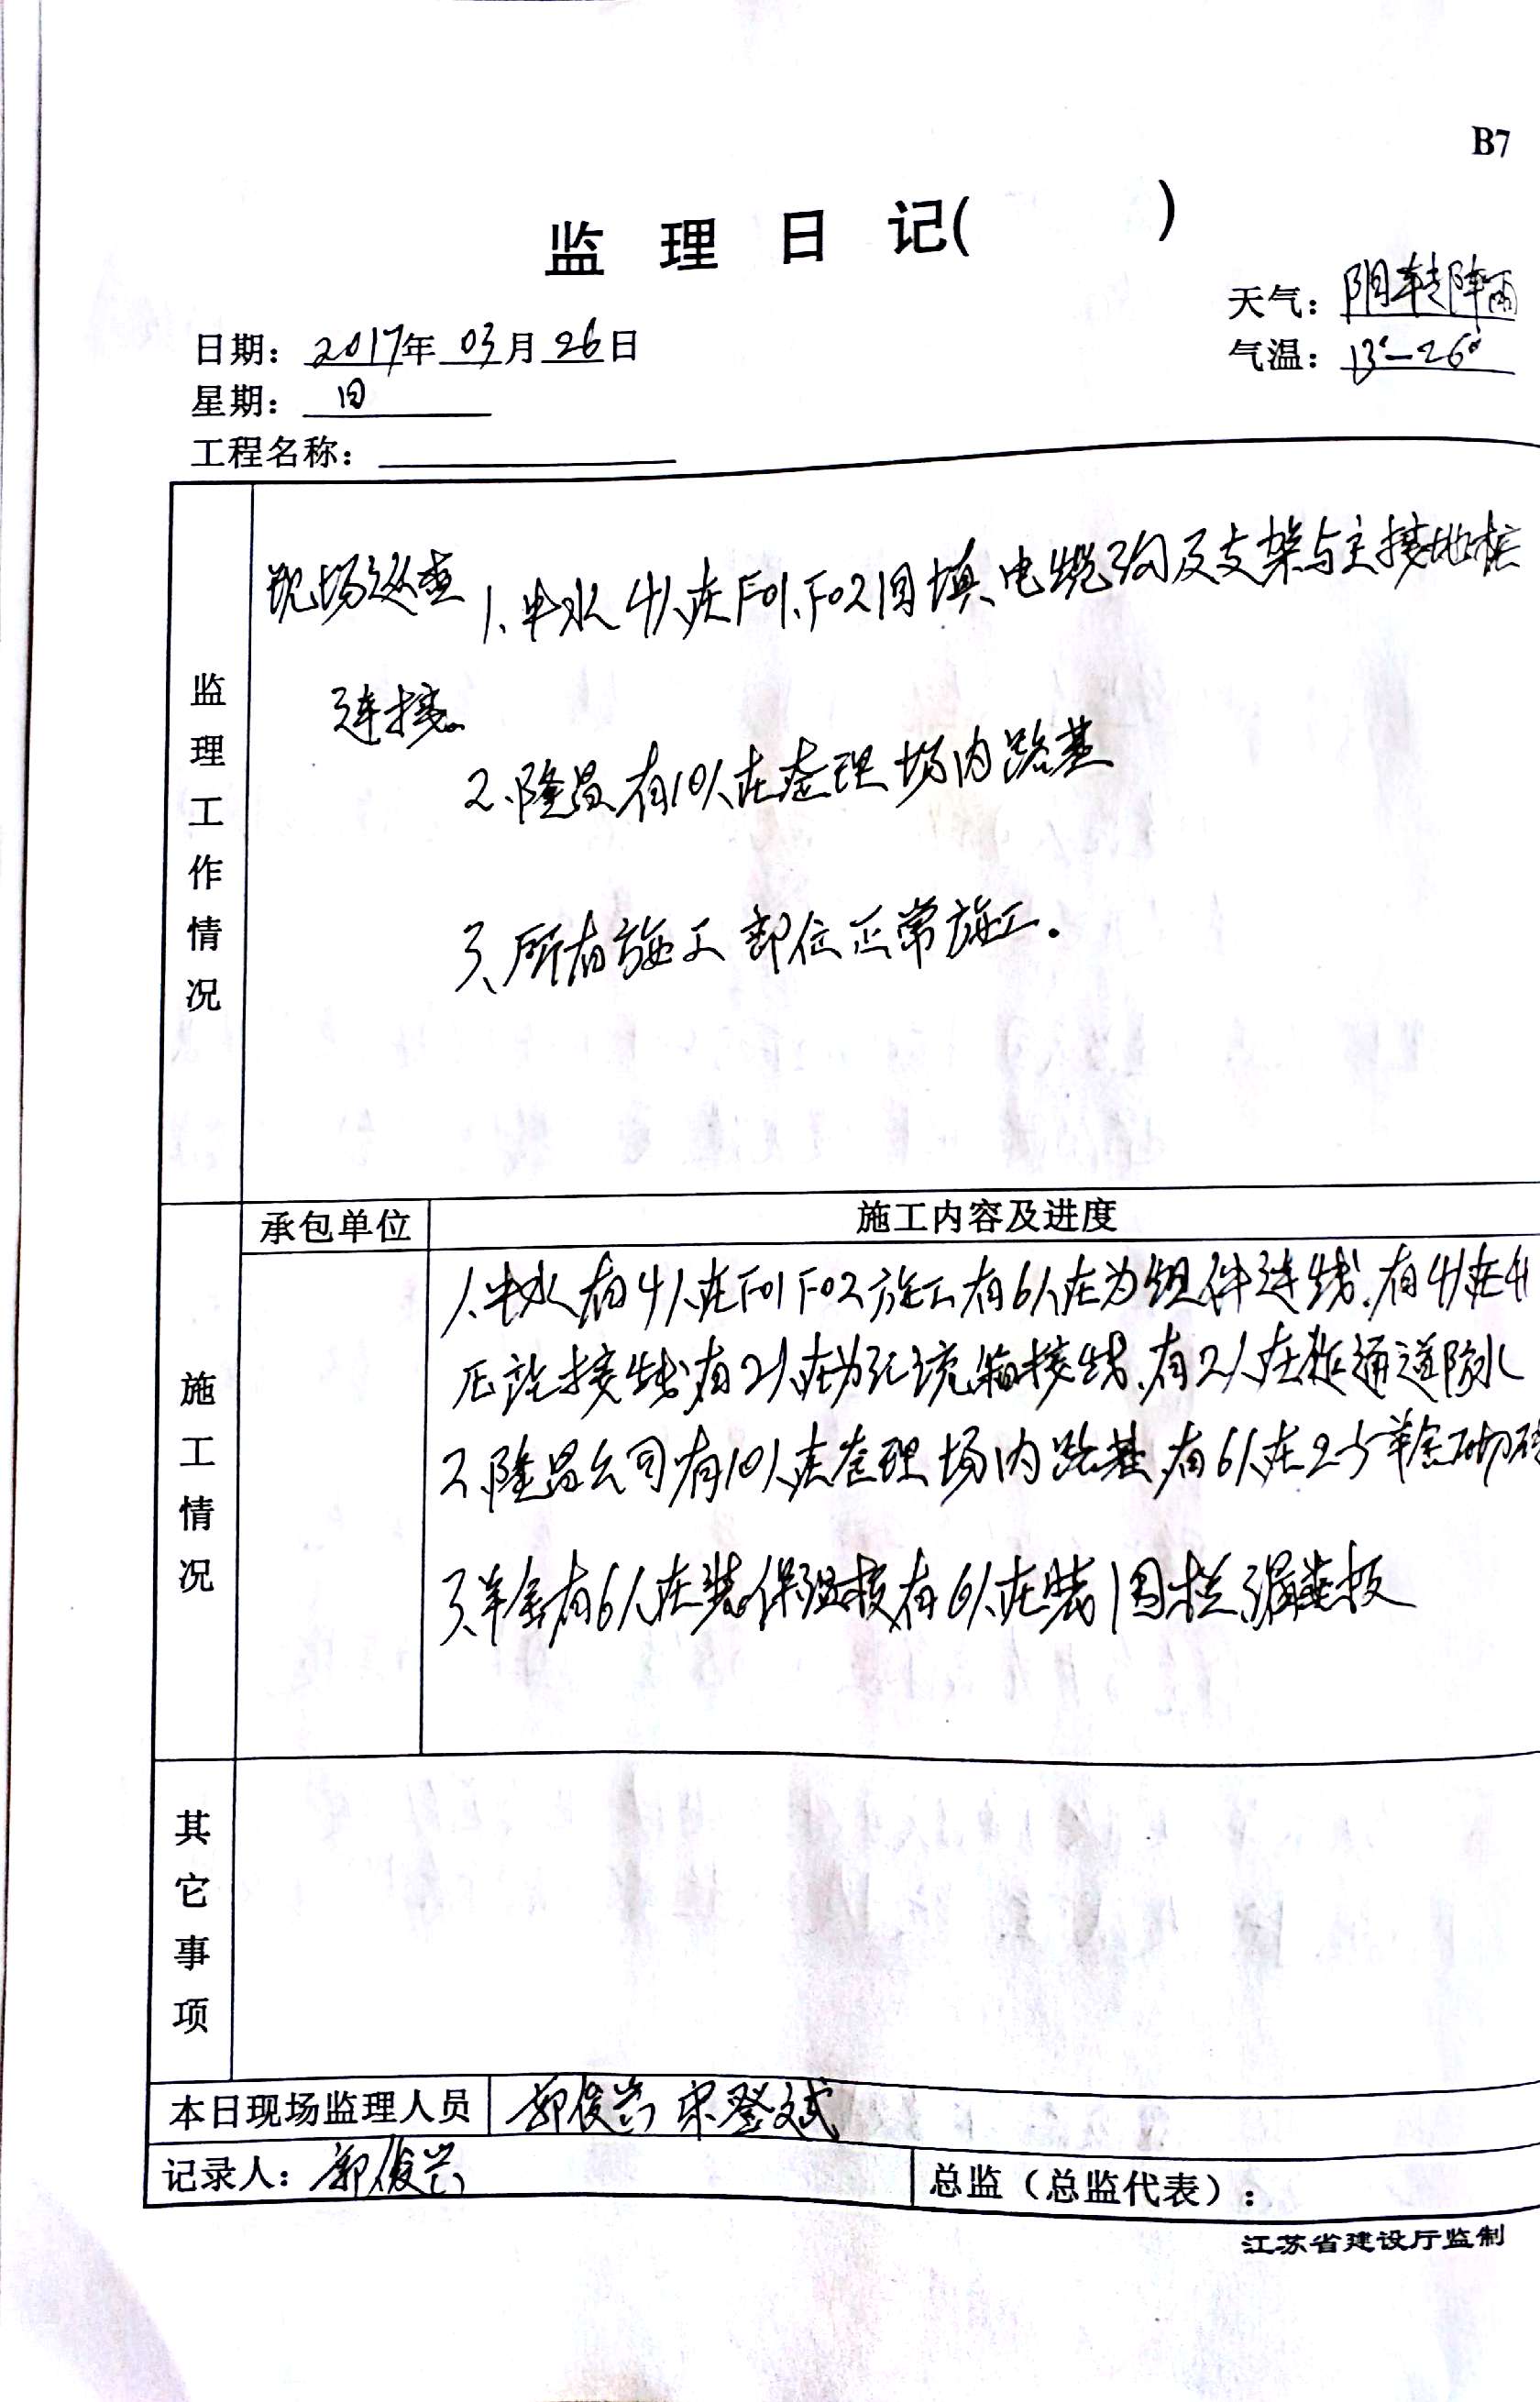 B7
监理日记( )
天气：阴转阵雨
日期：2017年03月26日
气温：13°—26°
星期：日
工程名称：
监理工作情况
现场巡查 1、中水4人在F01、F02回填、电缆沟及支架与主接地桩
连接。
2、隆昌有10人在整理场内路基
3、所有施工部位正常施工.
承包单位
施工内容及进度
施工情况
1、中水有4人在F01 F02施工有6人在为组件连线、有4人在
压站接线有2人在为汇流箱接线、有2人在柜通道防水
2、隆昌公司有10人在整理场内路基、有6人在2号羊舍砌
3、羊舍有6人在装保温板有6人在装围栏漏粪板
其它事项
本日现场监理人员 郭俊兴 宋登斌
记录人：郭俊兴
总监（总监代表）：
江苏省建设厅监制